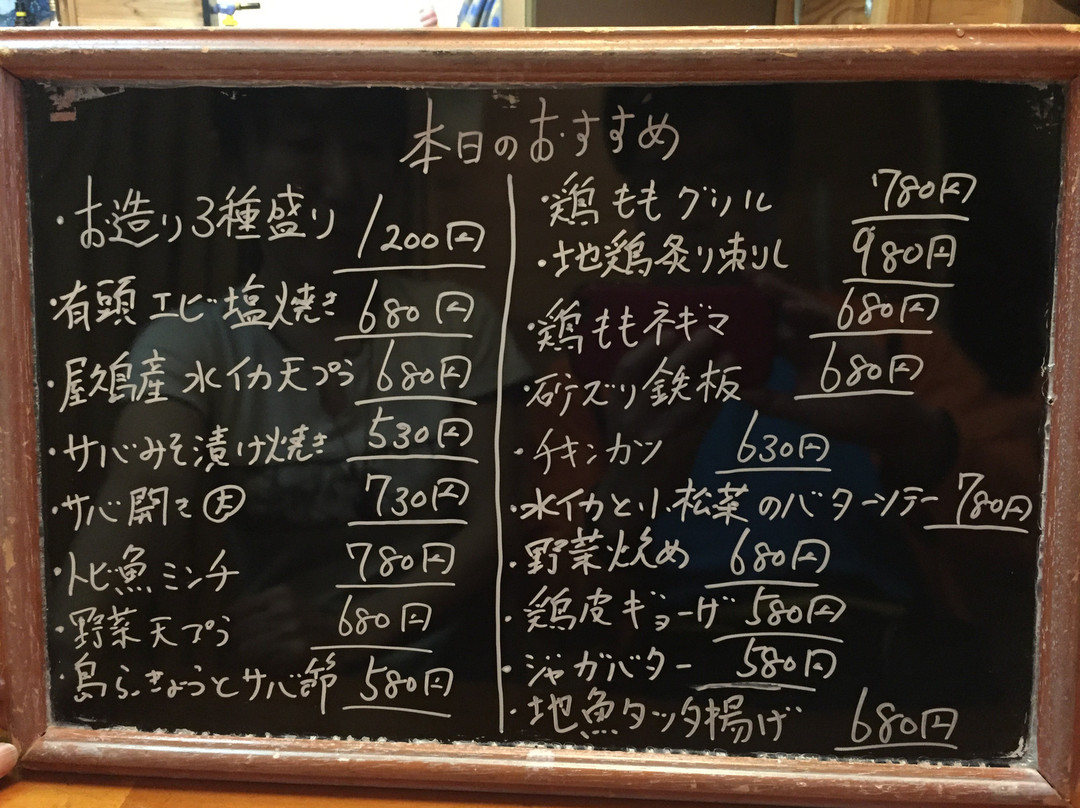 本日のおすすめ
・お造り3種盛り 1200円
・有頭エビ塩焼き 680円
・屋久島産 水イカ天プラ 680円
・サバみそ漬け焼き 530円
・サバ開き 730円
・トビ魚ミンチ 780円
・野菜天プラ 680円
・島らっきょうとサバ節 580円
・鶏ももグリル 780円
・地鶏炙り刺し 980円
・鶏ももネギマ 680円
・砂ズリ鉄板 680円
・チキンカツ 630円
・水イカと小松菜のバターソテー 780円
・野菜炒め 680円
・鶏皮ギョーザ 580円
・ジャガバター 580円
・地魚タツタ揚げ 680円